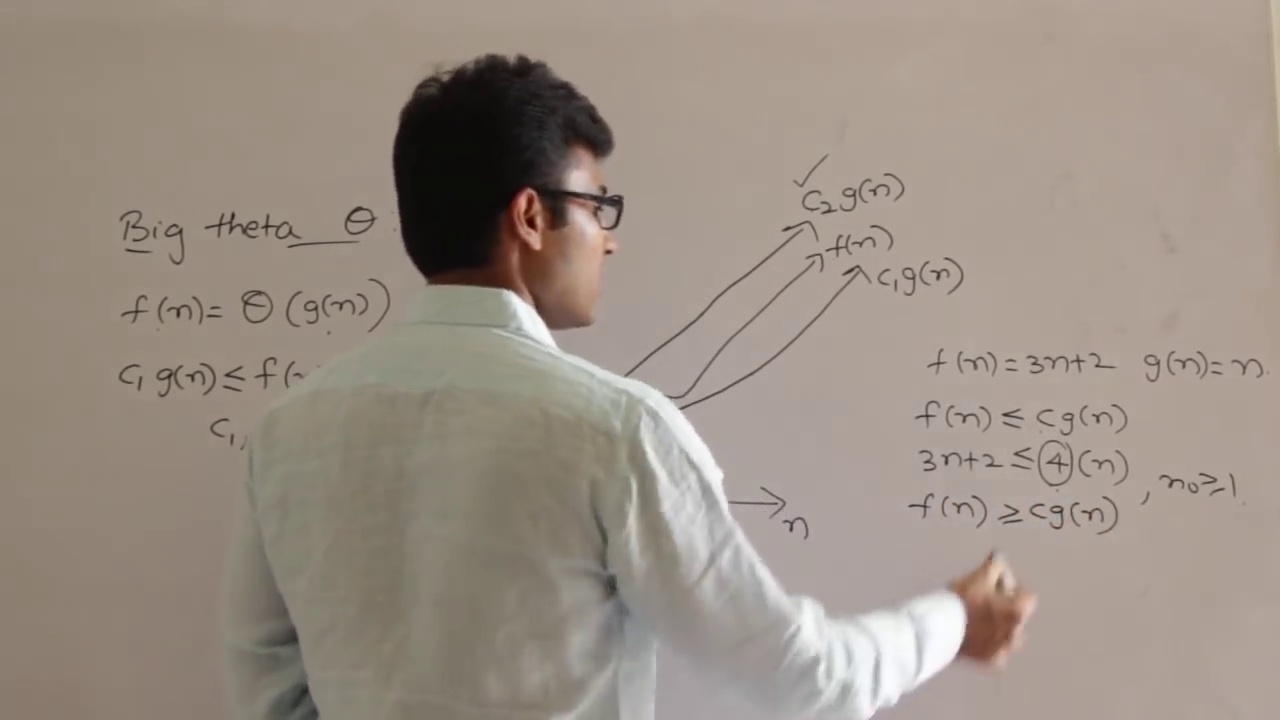 Big theta Θ
f(n)= Θ (g(n))
c₁ g(n) ≤ f(n
c₁,
✓
c₂ g(n)
f(n)
c₁ g(n)
n
f(n)=3n+2 g(n)=n.
f(n) ≤ cg(n)
3n+2 ≤ 4(n)
, n₀ ≥ 1.
f(n) ≥ cg(n)